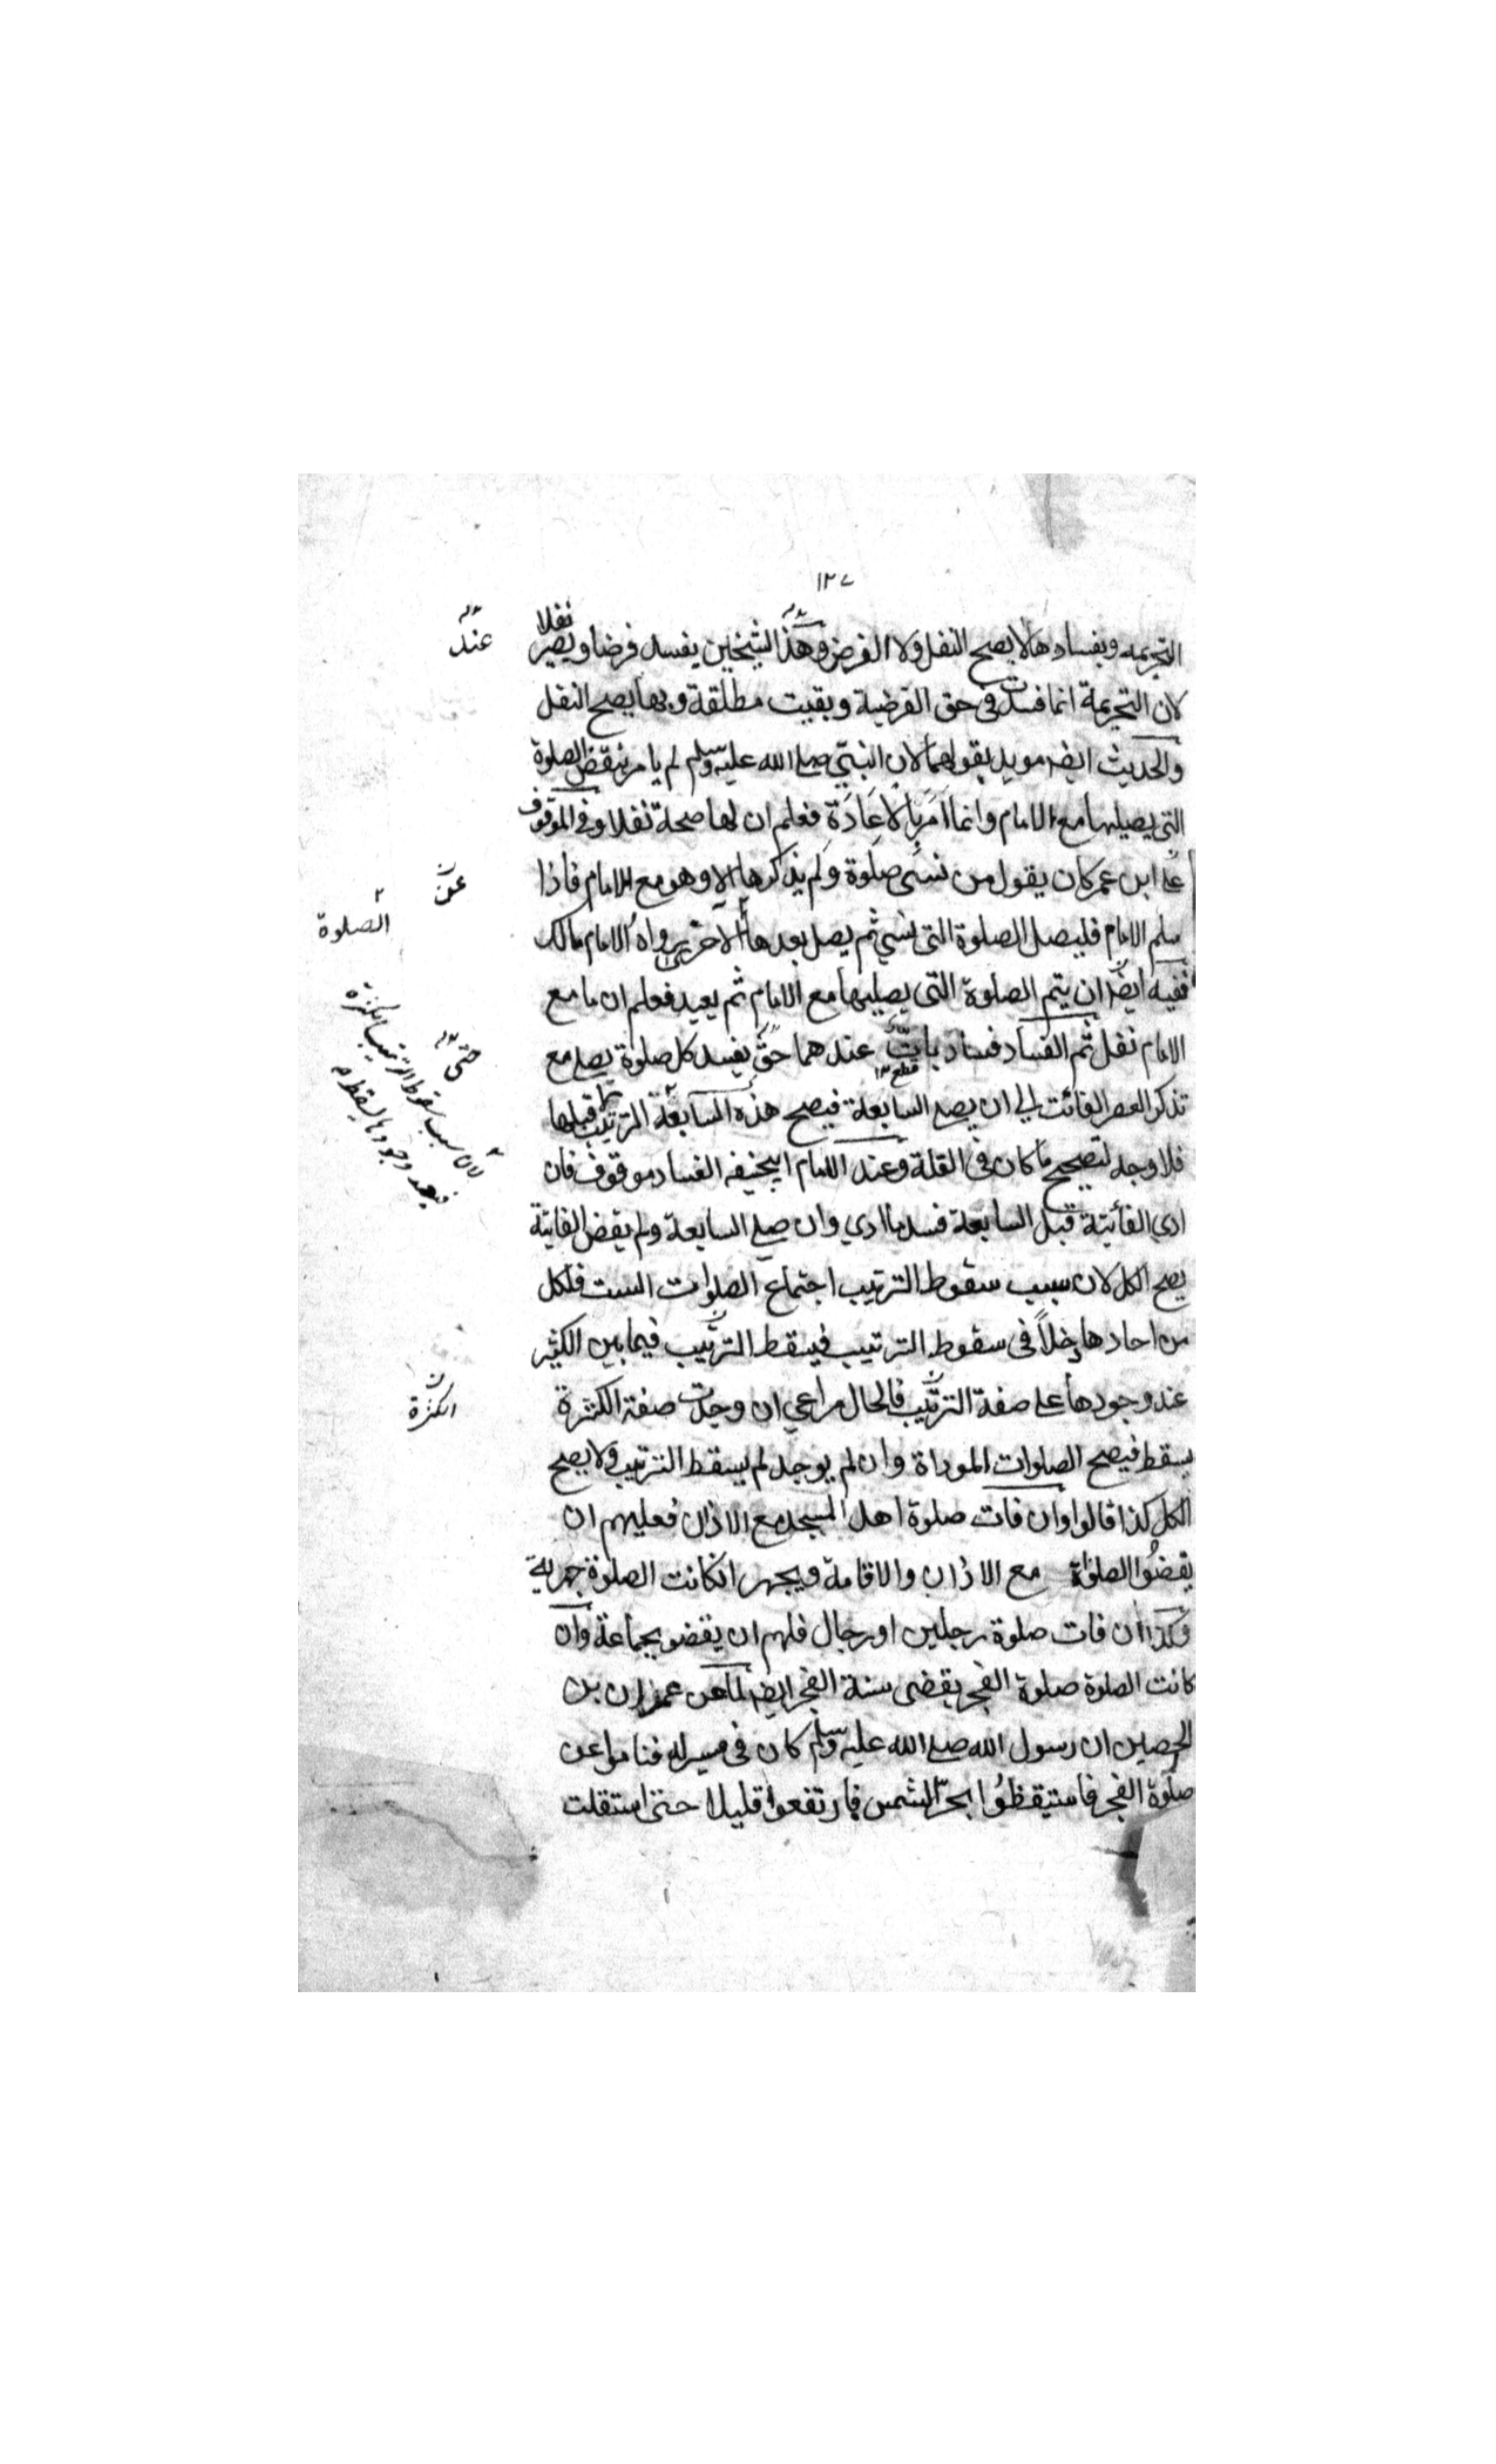 ١٢٧
التحريمه وبفسادها لا يصح النفل ولا الفرض وهذا الشيخين يفسد فرضا ويصير نفلا
عند
لان التحريمة انما فسدت في حق الفرضية وبقيت مطلقة وبها يصح النفل
والحديث ايضا مويد بقولهما لان النبي صلى الله عليه وسلم لم يامر بنقض الصلوة
التي يصليها مع الامام وانما امر بالاعادة فعلم ان لها صحة نفلا وفي الموقوف
على ابن عمر كان يقول من نسى صلوة ولم يذكرها الا وهو مع الامام فاذا
عن
سلم الامام فليصل الصلوة التي نسي ثم يصل بعدها الاخرى رواه الامام مالك
الصلوة
ففيه ايضا ان يتم الصلوة التي يصليها مع الامام ثم يعيد فعلم ان ما مع
الامام نفل ثم الفساد فساد بات عندهما حق يفسد كل صلوة يصلي مع
قطع ١٢
حتى ١٢
تذكر العصر الفائت الى ان يصلي السابعة فيصح هذه السابعة الترتيب قبلها
لان سبب سقوط الترتيب الكثرة
فبعد وجودها يسقط
فلا وجه لتصحيح ما كان في القلة وعند الامام ابيحنيفه الفساد موقوف فان
ادي الفائتة قبل السابعة فسد ما ادي وان صلى السابعة ولم يقض الفايتة
يصح الكل لان سبب سقوط الترتيب اجتماع الصلوات الست فلكل
من احادها دخلا في سقوط الترتيب فيسقط الترتيب فيما بين الكثير
عند وجودها على صفة الترتيب فالحال مراعي ان وجدت صفة الكثرة
الكثرة
يسقط فيصح الصلوات الموداة وان لم يوجد لم يسقط الترتيب ولا يصح
الكل كذا قالوا وان فات صلوة اهل المسجد مع الاذان فعليهم ان
يقضوا الصلوة مع الاذان والاقامة ويجهر انكانت الصلوة جهرية
وكذا ان فات صلوة رجلين او رجال فلهم ان يقضو بجماعة وان
كانت الصلوة صلوة الفجر يقضى سنة الفجر ايضا لما عن عمران بن
الحصين ان رسول الله صلى الله عليه وسلم كان في مسير له فناموا عن
صلوة الفجر فاستيقظوا بحر الشمس فارتفعوا قليلا حتى استقلت